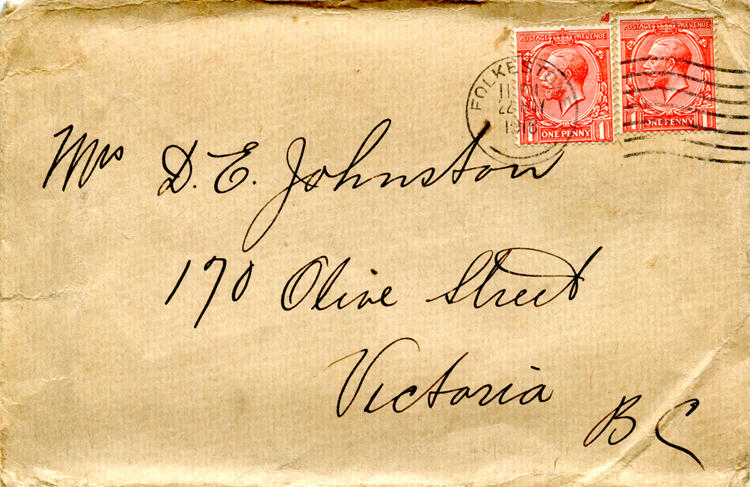 POSTAGE REVENUE
ONE PENNY
POSTAGE REVENUE
ONE PENNY
FOLKESTON
1916
Mrs D. E. Johnston
170 Olive Street
Victoria
B C